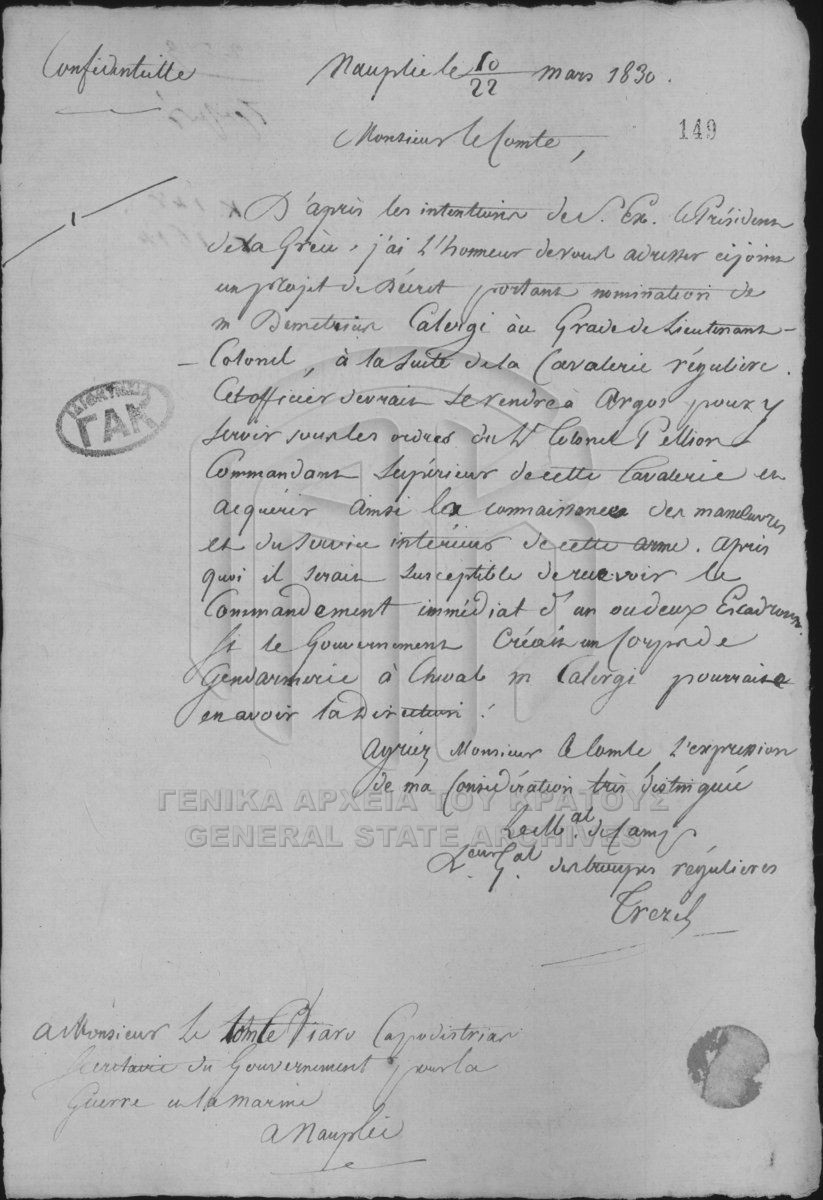 Confidentielle
Nauplie le 10/22 mars 1830.
149
Monsieur le Comte,
1
D'après les intentions de S. Ex. le Président
de la Grèce, j'ai l'honneur de vous adresser ci joint
un projet de Décret portant nomination de
m Demetrius Calergi au Grade de Lieutenant-
Colonel, à la suite de la Cavalerie régulière.
Cet officier devrait se rendre à Argos pour y
servir sous les ordres du Lt Colonel Pellion
Commandant Supérieur de cette Cavalerie et
acquérir ainsi la connaissance des manœuvres
et du service intérieur de cette arme. Après
quoi il serait susceptible de recevoir le
Commandement immédiat d'un ou deux Escadrons.
Si le Gouvernement créait un Corps de
Gendarmerie à Cheval m Calergi pourrait
en avoir la Direction.
Agréez Monsieur le Comte l'expression
de ma Considération très distinguée
Le Mal. de Camp
Der. Gal. des troupes régulières
Trezel
a Monsieur le Comte Viaro Capodistrias
Secrétaire du Gouvernement pour la
Guerre et la marine
a Nauplie
ΓΑΚ
ΓΕΝΙΚΑ ΑΡΧΕΙΑ ΤΟΥ ΚΡΑΤΟΥΣ
GENERAL STATE ARCHIVES